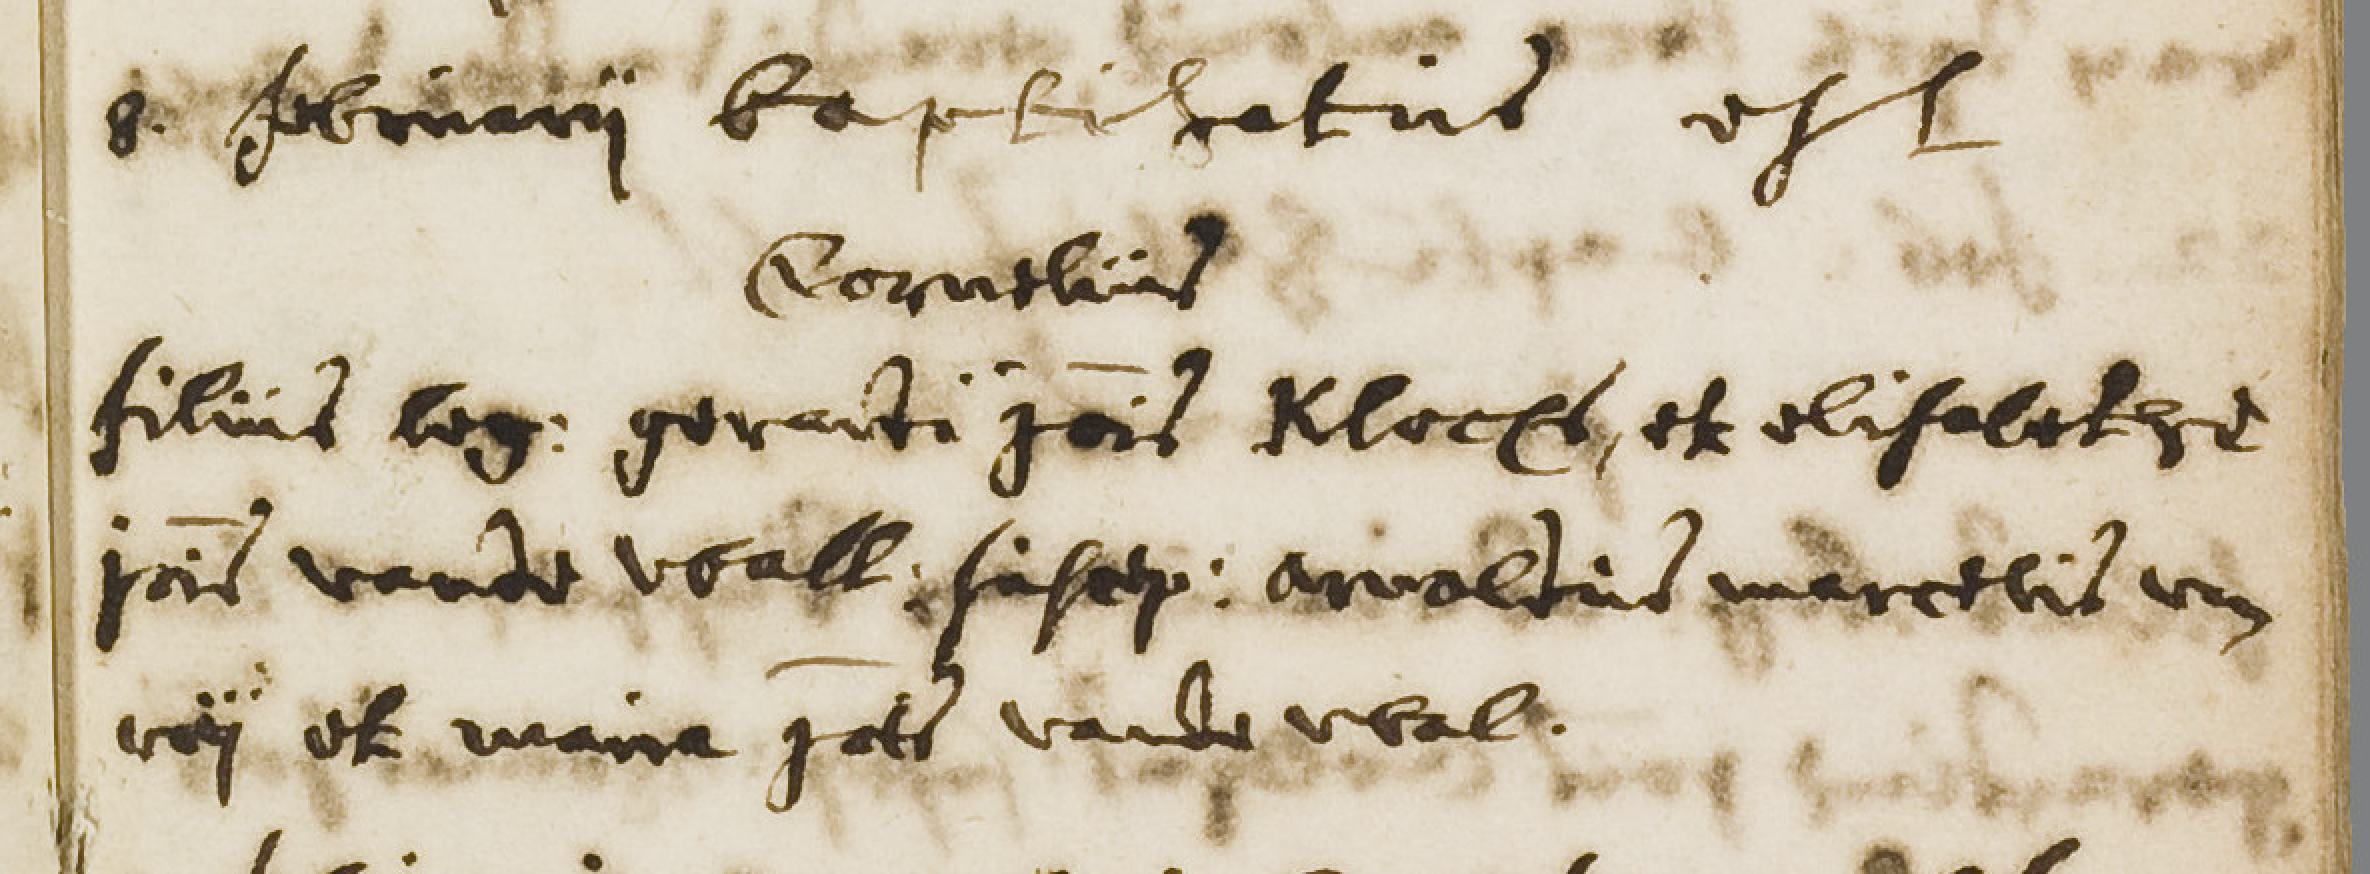 8. februarij baptisatus est
Cornelius
filius leg: gerardi jois Klocks, et elisabethe
jois vande Wall. suscep: arnoldus marcelis van
roij et maria jois vande wal.